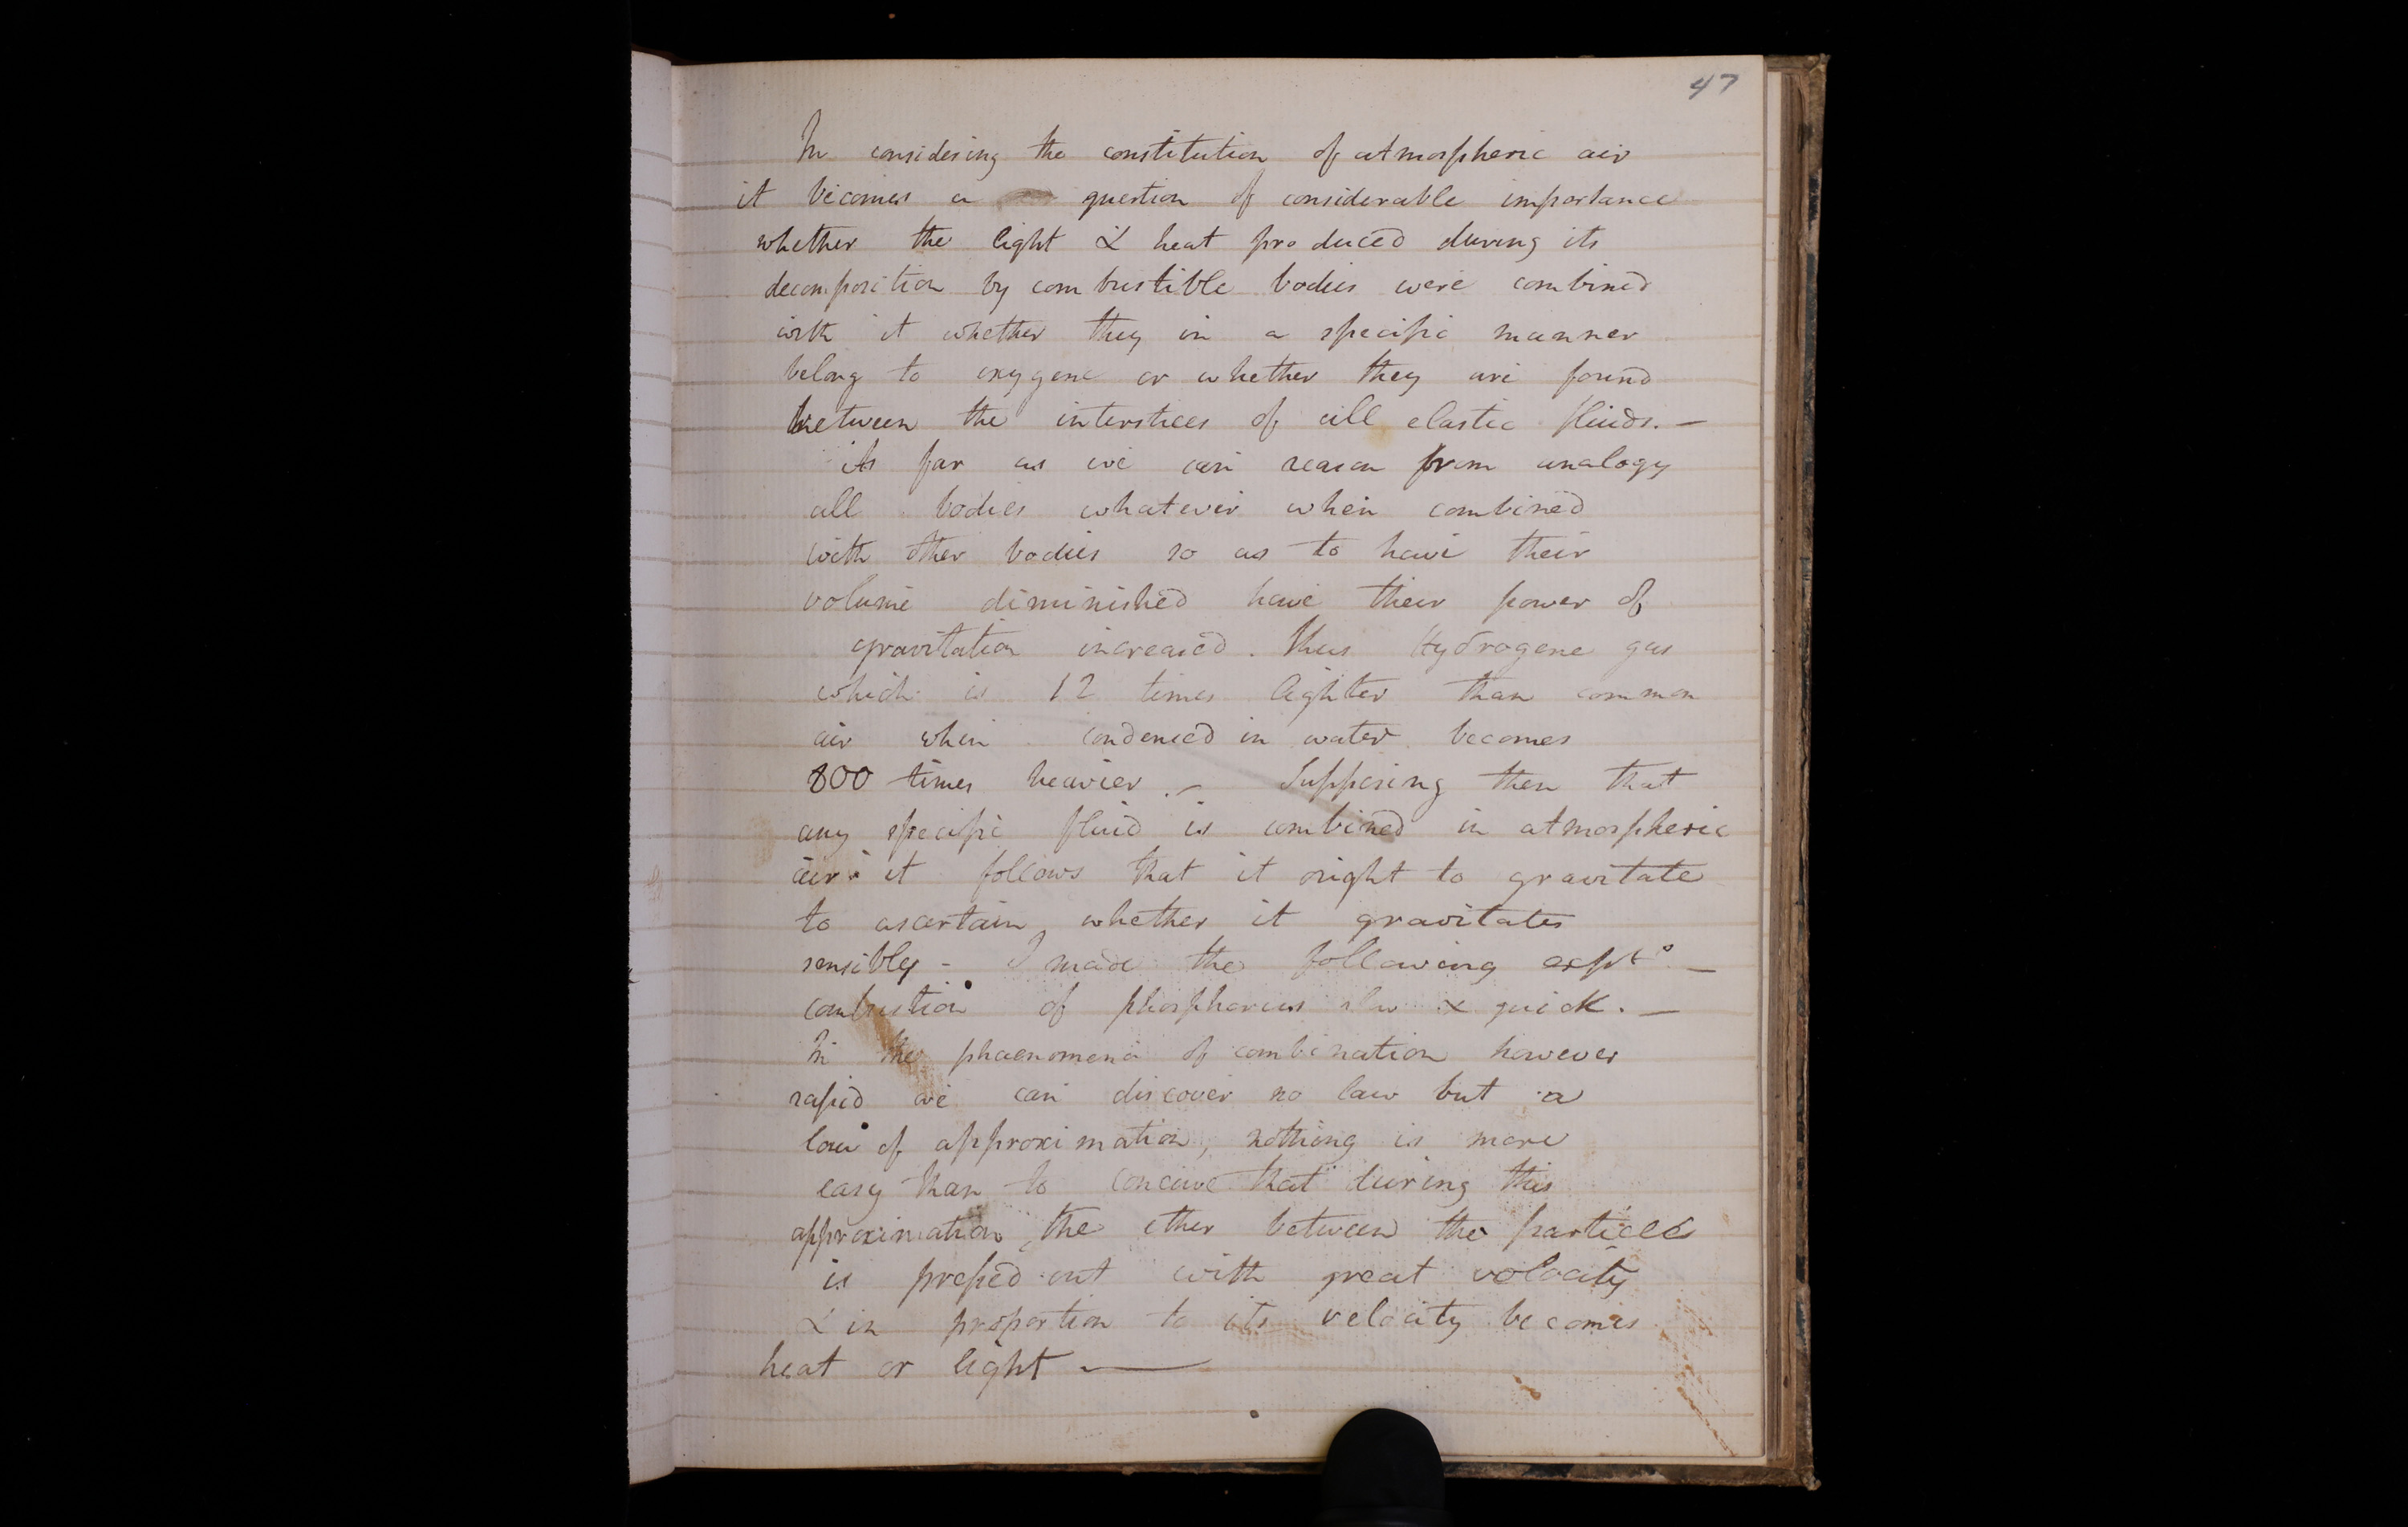 47
In considering the constitution of atmospheric air
it becomes a question of considerable importance
whether the light & heat produced during its
decomposition by combustible bodies were combined
with it whether they in a specific manner
belong to oxygene or whether they are found
between the interstices of all elastic fluids. —
As far as we can reason from analogy
all bodies whatever when combined
with other bodies so as to have their
volume diminished have their power of
gravitation increased. Thus Hydrogene gas
which is 12 times lighter than common
air when condensed in water becomes
800 times heavier. — Supposing then that
any specific fluid is combined in atmospheric
air it follows that it ought to gravitate
to ascertain whether it gravitates
sensibly - I made the following expts —
combustion of phosphorus slow & quick. —
In the phaenomena of combination however
rapid we can discover no law but a
law of approximation, nothing is more
easy than to conceive that during this
approximation the ether between the particles
is pressed out with great velocity
& in proportion to its velocity becomes
heat or light —